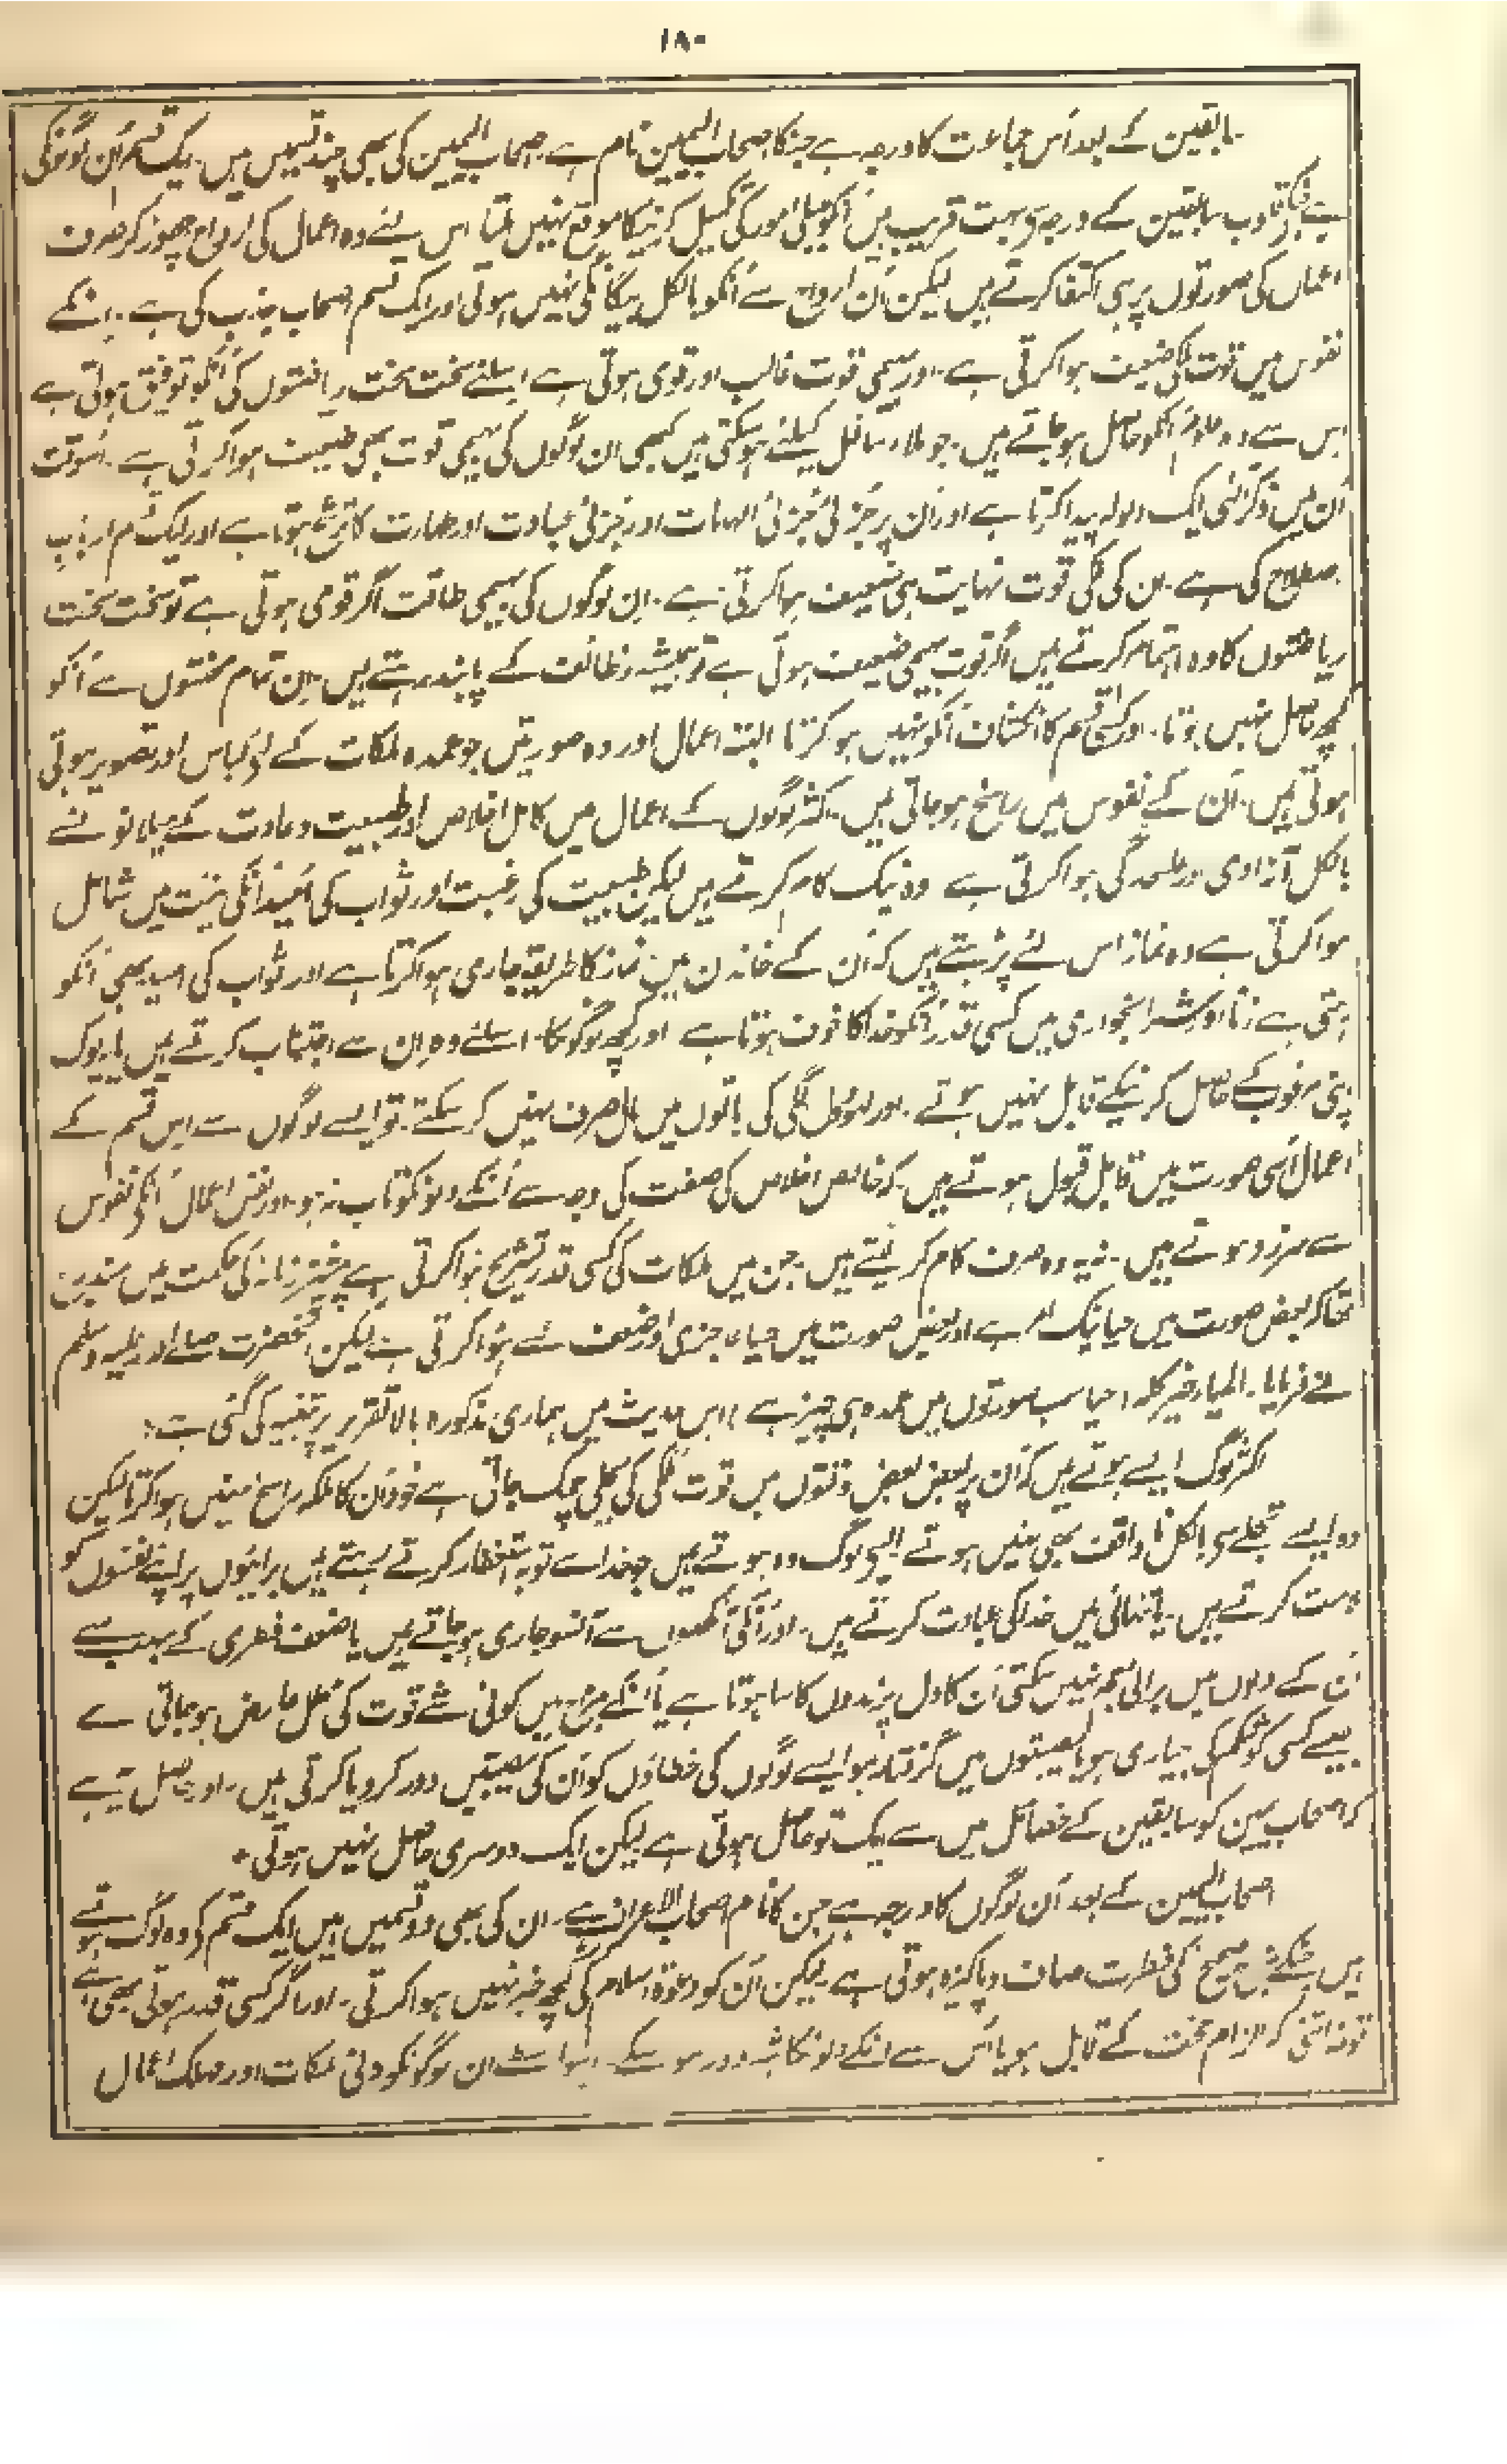 ۱۸۰
سابقین کے بعد اُس جماعت کا درجہ ہے جنکا اصحاب الیمین نام ہے۔ اصحاب الیمین کی بھی چند قسمیں ہیں۔ یک قسم اُن لوگونکی
ہے جنکے قلوب سابقین کے درجہ سے بہت قریب ہیں اُنکو جبلی امور کی تکمیل کرنیکا موقع نہیں ملتا اس لئے وہ اعمال کی ارواح چھوڑ کر صرف
اعمال کی صورتوں پر ہی اکتفا کرتے ہیں لیکن اُن ارواح سے اُنکو بالکل بیگانگی نہیں ہوتی اور ایک قسم اصحاب جذب کی ہے۔ انکے
نفوس میں قوت ملکی ضعیف ہوا کرتی ہے۔ اور بہیمی قوت غالب اور قوی ہوتی ہے اسلئے سخت سخت ریاضتوں کی اُنکو توفیق ہوتی ہے
اس سے وہ علوم انکو حاصل ہو جاتے ہیں۔ جو ملاء سافل کیلئے ہو سکتی ہیں کبھی ان لوگوں کی بہیمی قوت بھی ضعیف ہوا کرتی ہے۔ اسوقت
اُن میں ذکر الٰہی ایک ولولہ پیدا کرتا ہے اور اُن پر جزئی جزئی الہامات اور جزئی عبادت اور طہارت کا ترشح ہوتا ہے اور ایک قسم ارباب
اصطلاح کی ہے۔ ان کی ملکی قوت نہایت ہی ضعیف ہوا کرتی ہے۔ اِن لوگوں کی بہیمی طاقت اگر قومی ہوتی ہے تو سخت سخت
ریاضتوں کا وہ اہتمام کرتے ہیں اگر قوت بہیمی ضعیف ہوتی ہے تو ہمیشہ وظائف کے پابند رہتے ہیں۔ اِن تمام محنتوں سے اُنکو
کچھ حاصل نہیں ہوتا۔ اور کسی قسم کا انکشاف اُنکو نہیں ہو کرتا البتہ اعمال اور وہ صورتیں جو عمدہ ملکات کے لئے لباس اور تصویر ہوتی
ہوتی ہیں۔ اُن کے نفوس میں راسخ ہو جاتی ہیں۔ اکثر لوگوں کے اعمال میں کامل اخلاص اور طبیعت و عادت کے میلانوں سے
بالکل آزادی اور علیحدگی ہوا کرتی ہے وہ نیک کام کرتے ہیں لیکن طبیعت کی رغبت اور ثواب کی اُمید اُنکی نیت میں شامل
ہوا کرتی ہے وہ نماز اس لئے پڑہتے ہیں کہ اُن کے خاندان میں نماز کا طریقہ جاری ہوا کرتا ہے اور ثواب کی امید بھی اُنکو
ہوتی ہے زنا اور شرابخواری میں کسی قدر اُنکو خدا کا خوف ہوتا ہے اور کچھ لوگونکا۔ اسلئے وہ اِن سے اجتناب کرتے ہیں یا یہ لوگ
اپنی مرغوب کے حاصل کرنیکے قابل نہیں ہوتے۔ اور لہو دل لگی کی باتوں میں مال صرف نہیں کر سکتے۔ تو ایسے لوگوں سے اس قسم کے
اعمال اُسی صورت میں قابل قبول ہوتے ہیں۔ کہ خالص اخلاص کی صفت کی وجہ سے اُنکے دلونکو تاب نہ ہو۔ اور نفس اعمال اُنکی نفوس
سے سرزد ہوتے ہیں۔ نہ یہ وہ صرف کام کر لیتے ہیں جن میں ملکات کی کسی قدر تشریح ہوا کرتی ہے پیشتر زمانہ کی حکمت میں مندرج
تھا کہ بعض صورت میں حیا نیک امر ہے اور بعض صورت میں حیاء عاجزی اور ضعف سے ہوا کرتی ہے لیکن آنحضرت صلے اللہ علیہ وسلم
نے فرمایا۔ الحیاء خیر کلہ (حیا سب صورتوں میں عمدہ ہی چیز ہے) اس حدیث میں ہماری مذکورہ بالا تقریر پر تنبیہ کی گئی ہے:
اکثر لوگ ایسے ہوتے ہیں کہ اُن پر بعض بعض وقتوں میں قوت ملکی کی بجلی چمک جاتی ہے خود اُن کا ملکہ راسخ نہیں ہوا کرتا لیکن
وہ ایسے تجلے سے بالکل ناواقف بھی نہیں ہوتے ایسی لوگ وہ ہوتے ہیں جو خدا سے توبہ استغفار کرتے رہتے ہیں برائیوں پر اپنے نفسوں کو
ملامت کرتے ہیں۔ یا تنہائی میں خدا کی عبادت کرتے ہیں۔ اور اُنکی آنکھوں سے آنسو جاری ہو جاتے ہیں یا ضعف فطری کے سبب سے
اُن کے دلوں میں برائی جم نہیں سکتی اُن کا دل پرندوں کا سا ہوتا ہے یا اُنکے مزاج میں کوئی شے قوت کی مخل عارض ہو جاتی ہے
جیسے کسی کو شکم کی بیماری ہو یا مصیبتوں میں گرفتار ہو ایسے لوگوں کی خطاؤں کو اُن کی مصیبتیں دور کر دیا کرتی ہیں۔ اور حاصل یہ ہے
کہ اصحاب یمین کو سابقین کے خصائل میں سے یک تو حاصل ہوتی ہے لیکن ایک دوسری حاصل نہیں ہوتی٭
اصحاب الیمین کے بعد اُن لوگوں کا درجہ ہے جن کا نام اصحاب الاعراف ہے۔ ان کی بھی دو قسمیں ہیں ایک قسم کے وہ لوگ ہوتے
ہیں جنکے مزاج صحیح کی فطرت صاف و پاکیزہ ہوتی ہے لیکن اُن کو دعوۃ اسلام کی کچھ خبر نہیں ہوا کرتی۔ اور اگر کسی قدر ہوتی بھی ہے
تو نہ اتنی کہ الزام حجت کے قابل ہو یا اُس سے انکے دلونکا شبہ دور ہو سکے۔ اسواسطے ان لوگونکو دنی ملکات اور مہلک اعمال